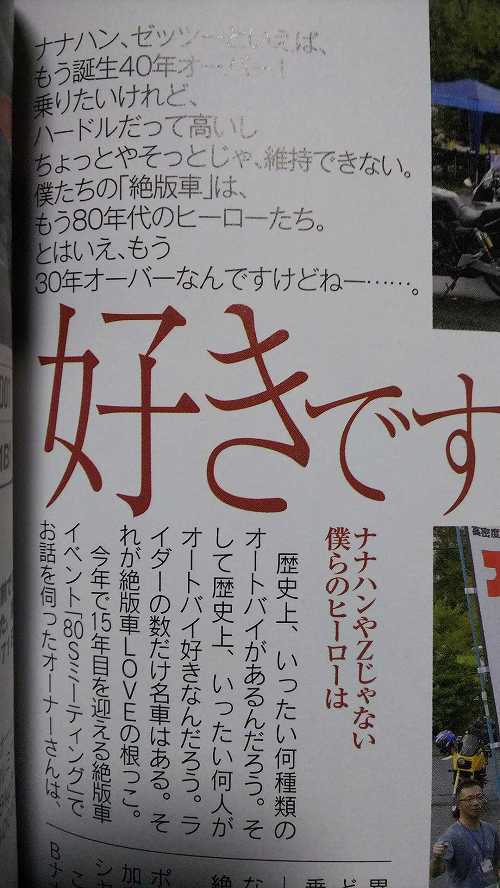 ナナハン、ゼッツーといえば、
もう誕生40年オーバー！
乗りたいけれど、
ハードルだって高いし
ちょっとやそっとじゃ、維持できない。
僕たちの「絶版車」は、
もう80年代のヒーローたち。
とはいえ、もう
30年オーバーなんですけどねー……。
好きです
ナナハンやZじゃない
僕らのヒーローは
歴史上、いったい何種類の
オートバイがあるんだろう。そ
して歴史上、いったい何人が
オートバイ好きなんだろう。ラ
イダーの数だけ名車はある。そ
れが絶版車LOVEの根っこ。
今年で15年目を迎える絶版車
イベント「80Sミーティング」で
お話を伺ったオーナーさんは、
高密度